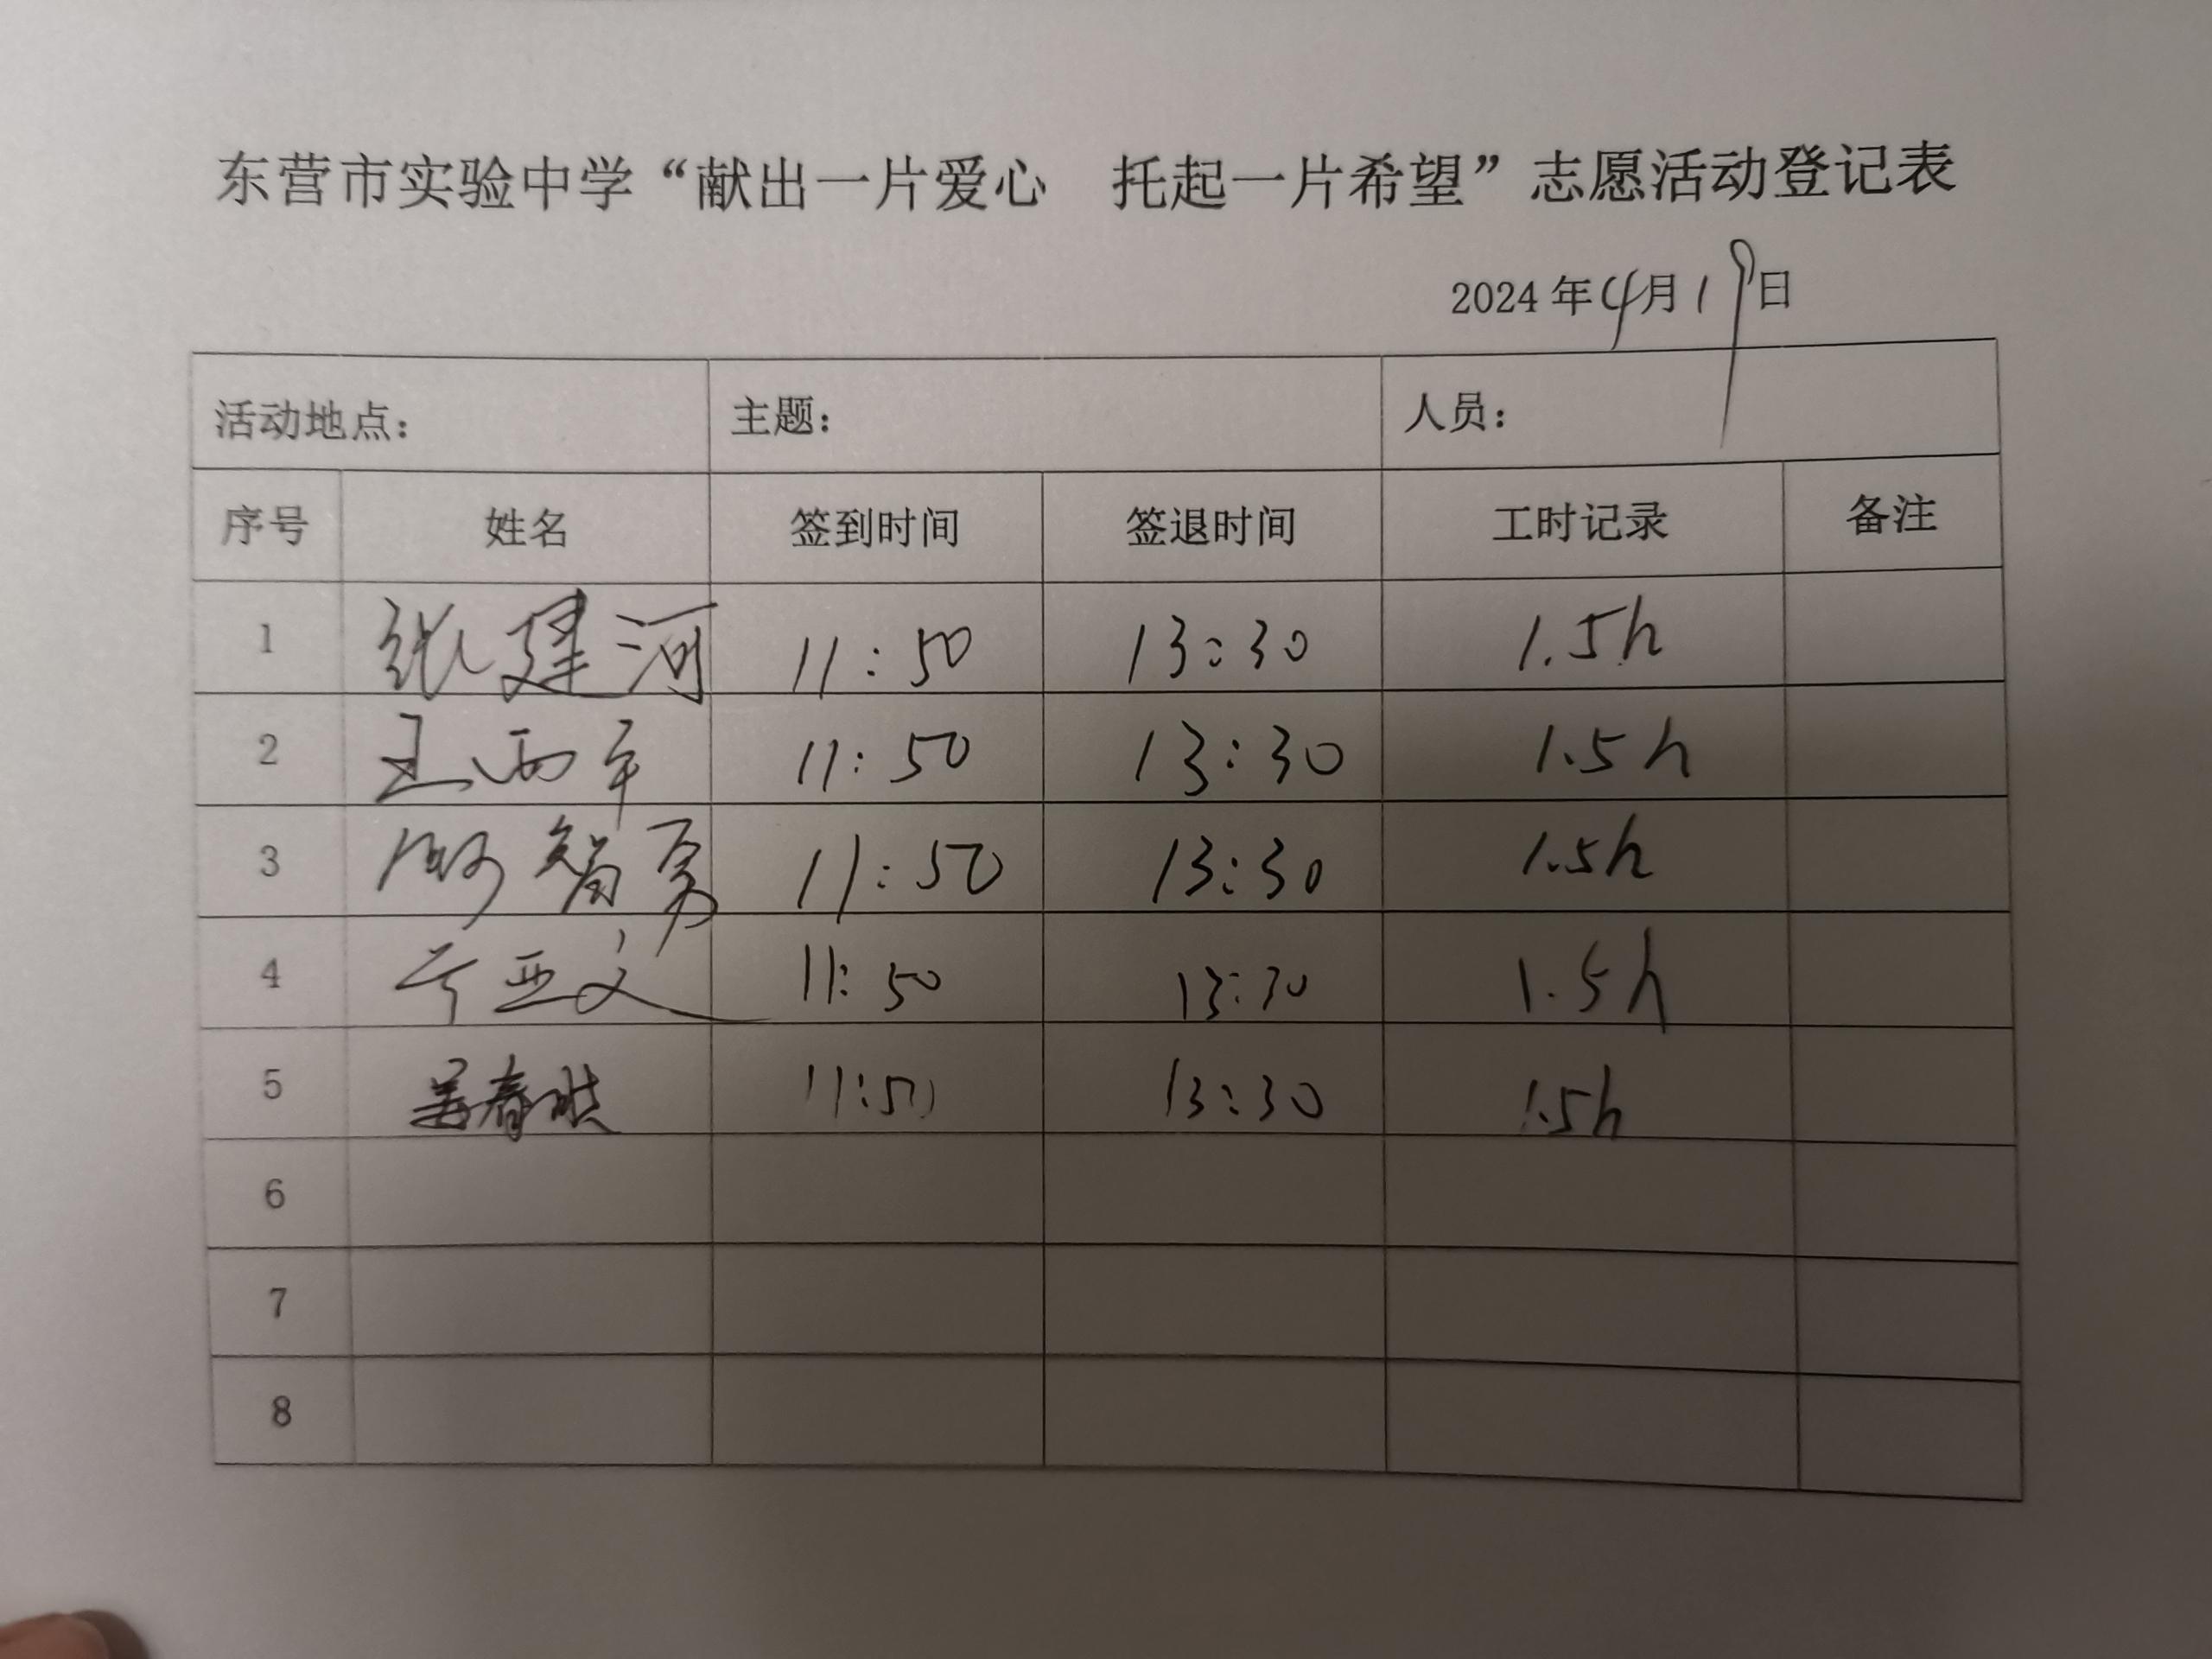 东营市实验中学“献出一片爱心 托起一片希望”志愿活动登记表
2024年4月19日
活动地点： 主题： 人员：
序号 姓名 签到时间 签退时间 工时记录 备注
1 张建河 11:50 13:30 1.5h
2 王西军 11:50 13:30 1.5h
3 智勇 11:50 13:30 1.5h
4 亚文 11:50 13:30 1.5h
5 春 11:50 13:30 1.5h
6
7
8